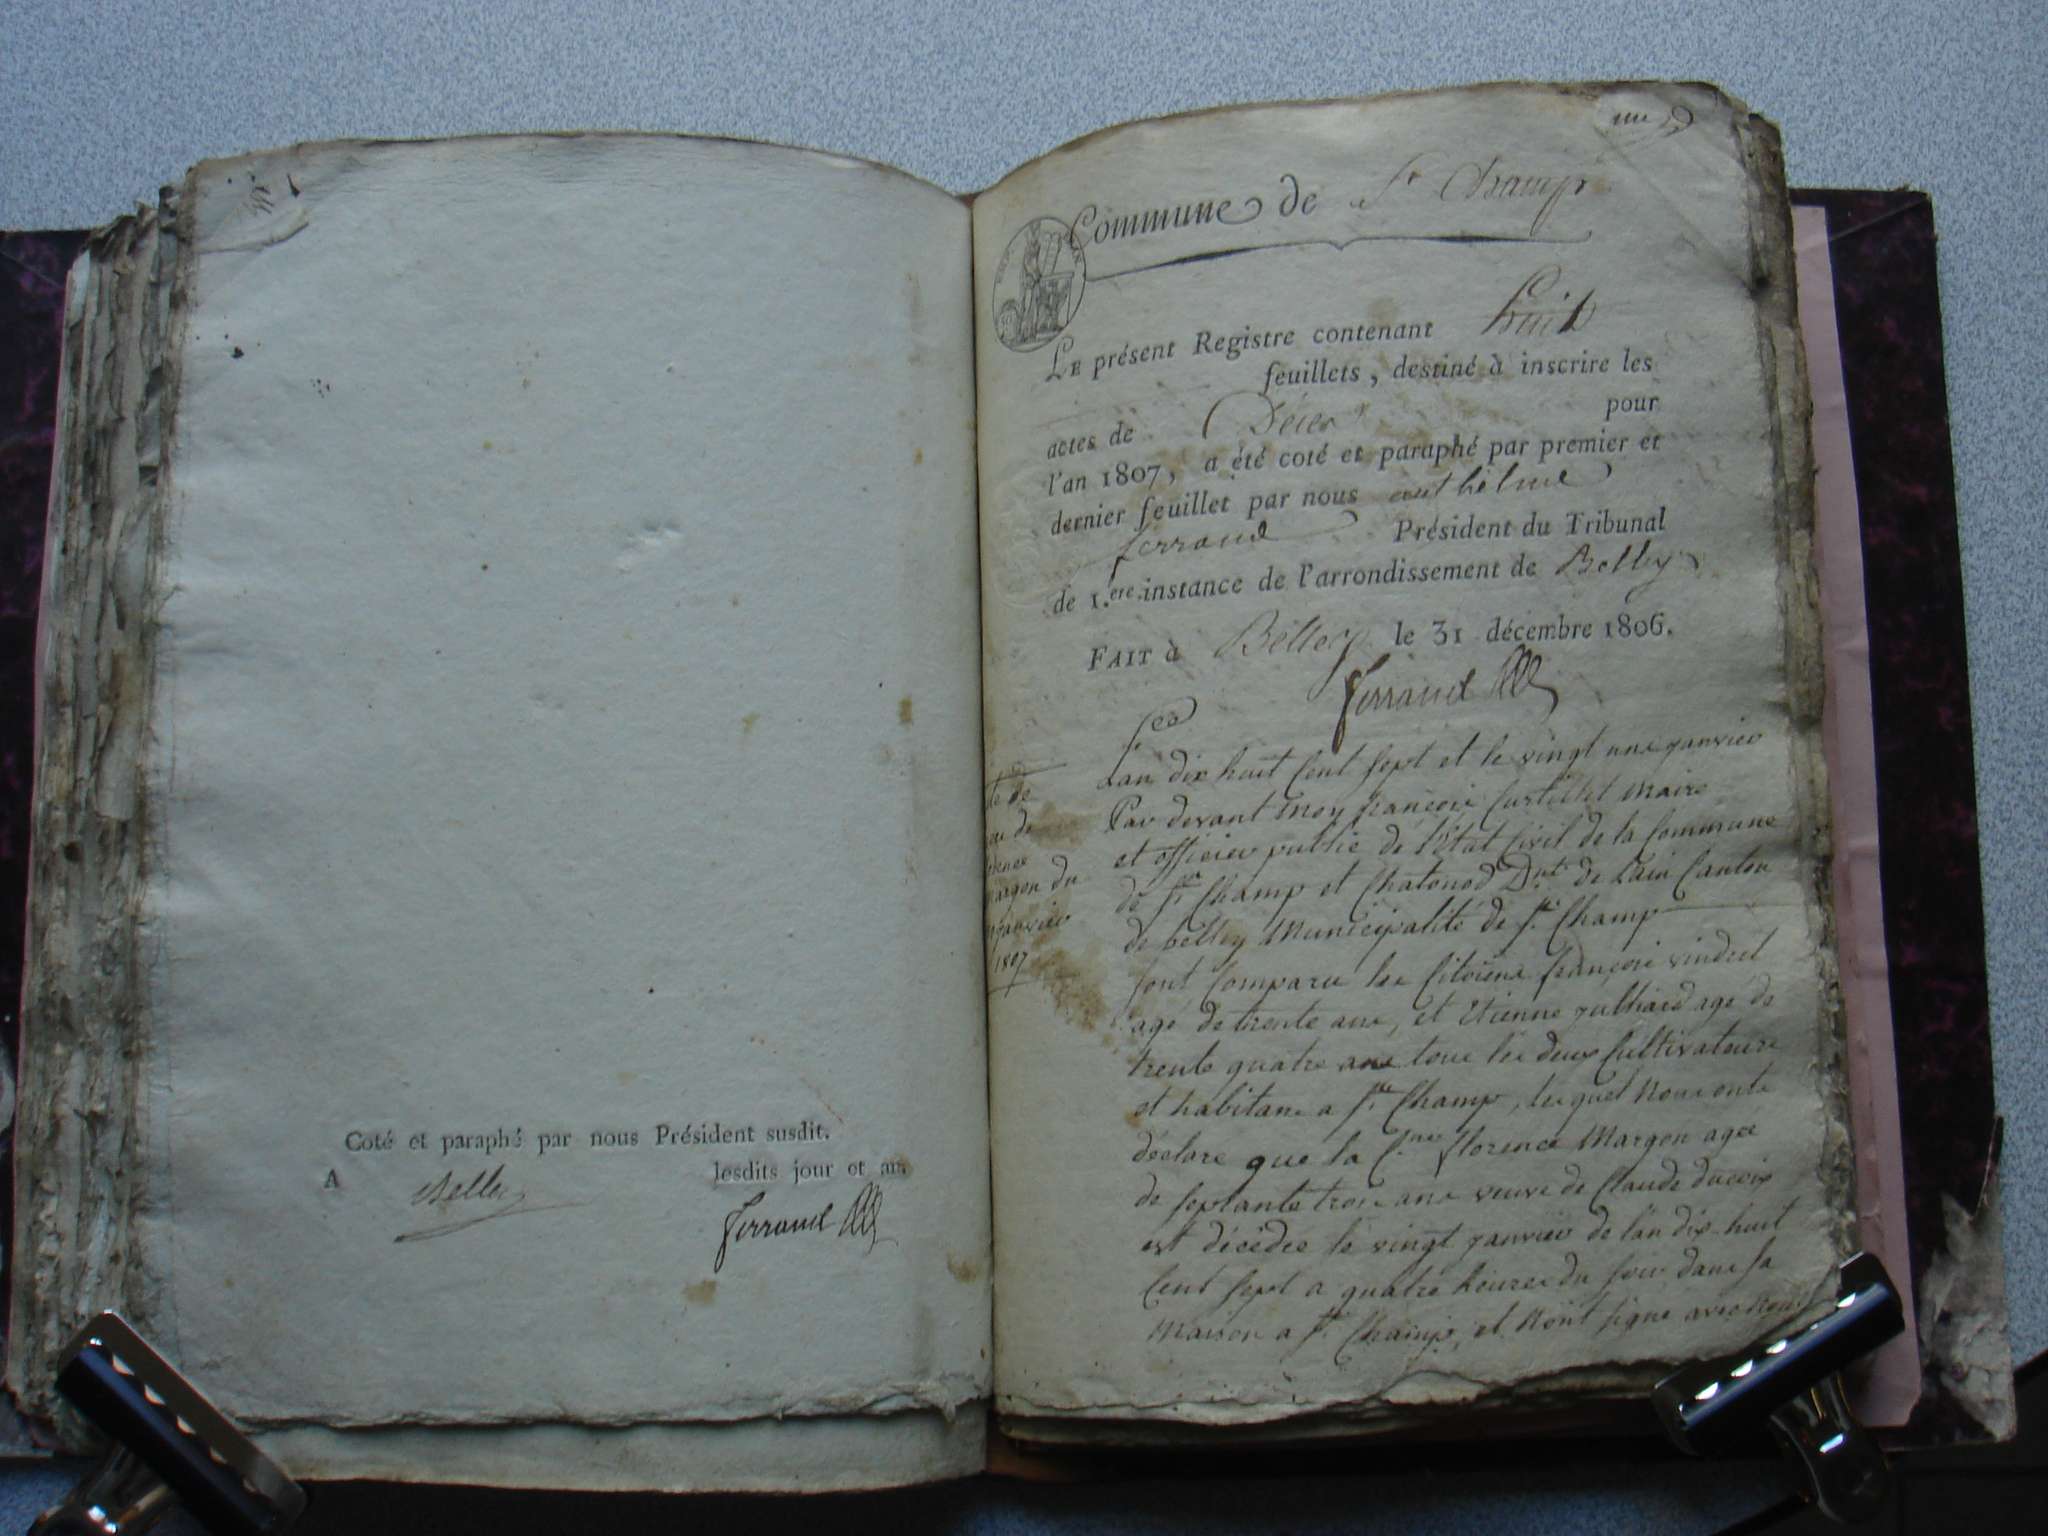 Coté et paraphé par nous Président susdit.
A Belley lesdits jour et an
Ferrand
Commune de St Champ
Le présent Registre contenant huit
feuillets, destiné à inscrire les
actes de Décès pour
l'an 1807, a été coté et paraphé par premier et
dernier feuillet par nous anthelme
ferrand Président du Tribunal
de 1.ere instance de l'arrondissement de Belley
Fait à Belley le 31 décembre 1806.
Ferrand
de
de
Margon du
janvier
1807
Lan dix huit Cent Sept et le vingt une janvier
Par devant moy françois Curtillet Maire
et officier public de l'Etat Civil de la Commune
de St Champ et Chatonod Dnt de Lain Canton
de belley Municipalité de St Champ
sont Comparu les Citoiens françois vindret
agé de trente ans, et Etienne julliard agé de
trente quatre ans tous les deux Cultivateurs
et habitans a St Champ, lesquel nous onts
déclare que la Cne florence Margon agée
de septante trois ans veuve de Claude ducoix
est décédée le vingt janvier de l'an dix huit
Cent Sept a quatre heures du soir dans sa
Maison a St Champ, et n'ont signé avec nous